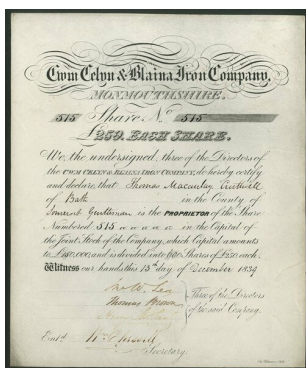 Cwm Celyn & Blaina Iron Company,
MONMOUTHSHIRE.
515 Share No. 515
£250. EACH SHARE.
We, the undersigned, three of the Directors of
the CWM CELYN & BLAINA IRON COMPANY, do hereby certify
and declare, that Thomas Macaulay Cruttwell
of Bath in the County of
Somerset Gentleman is the PROPRIETOR of the Share
Numbered 515 in the Capital of
the Joint Stock of the Company, which Capital amounts
to £150,000, and is divided into 600 Shares of £250 each.
Witness our hands this 13th day of December 1839
Three of the Directors
Thomas Brown
of the said Company.
Entd.
Secretary.